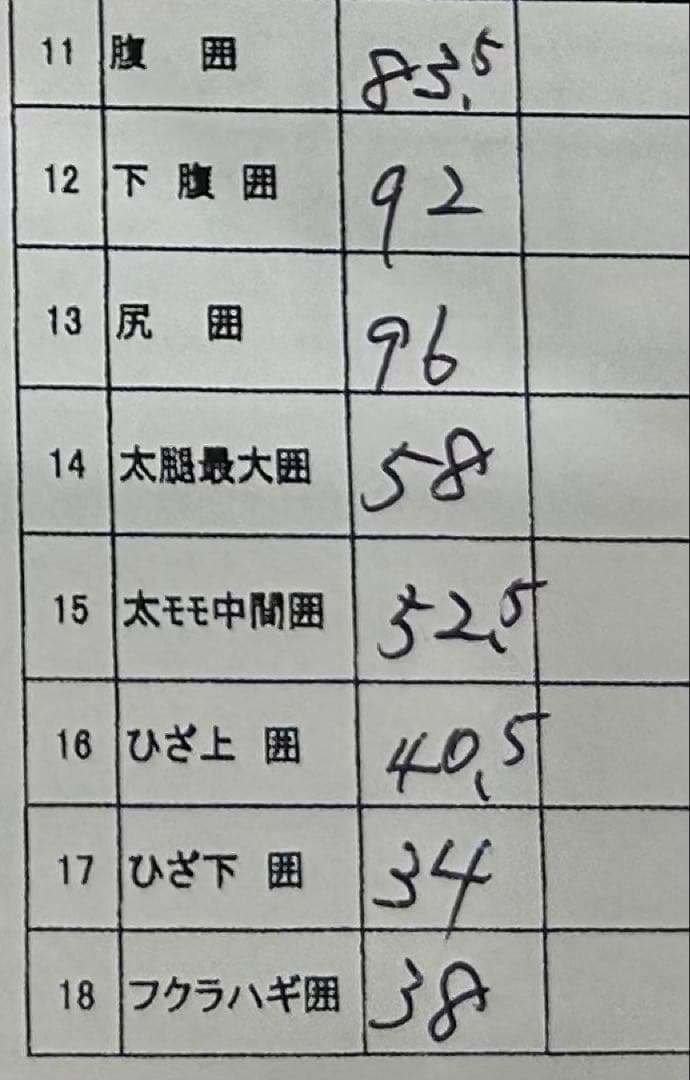 11 腹 囲 83.5
12 下 腹 囲 92
13 尻 囲 96
14 太腿最大囲 58
15 太モモ中間囲 52.5
16 ひざ上 囲 40.5
17 ひざ下 囲 34
18 フクラハギ囲 38